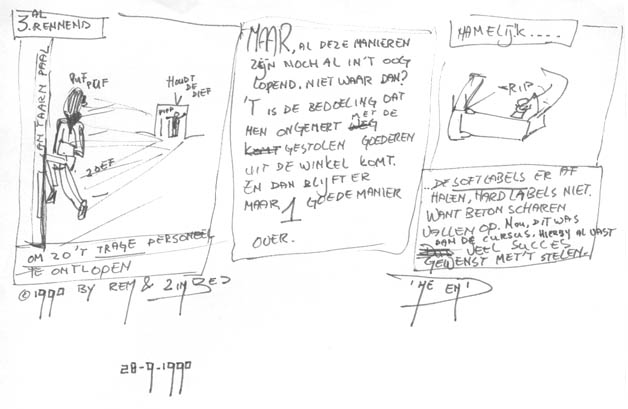 3. AL
RENNEND
LANTAARN PAAL
PUF
PUF
HOUDT
DE
DIEF
PIEP
ZOEF
OM ZO'T TRAGE PERSONEEL
TE ONTLOPEN
©1990 BY REM & ZIN
MAAR, AL DEZE MANIEREN
ZIJN NOCH AL IN'T OOG
LOPEND. NIET WAAR DAN?
'T IS DE BEDOELING DAT
MEN ONGEMERT WEG MET DE
KOMT GESTOLEN GOEDEREN
UIT DE WINKEL KOMT.
EN DAN BLIJFT ER
MAAR 1 GOEDE MANIER
OVER.
NAMELIJK....
RIP
..DE SOFTLABELS ER AF
HALEN, HARDLABELS NIET.
WANT BETON SCHAREN
VALLEN OP. NOU, DIT WAS
DAN DE CURSUS. HIERBY ALVAST
VEEL SUCCES
GEWENST MET'T STELEN.
28-9-1990